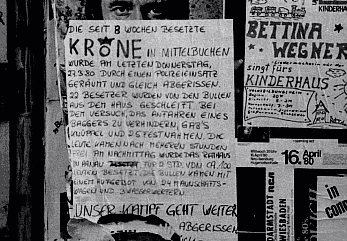 DIE SEIT 8 WOCHEN BESETZTE
KRONE IN MITTELBUCHEN
WURDE AM LETZTEN DONNERSTAG,
27.3.80 DURCH EINEN POLIZEIEINSATZ
GERÄUMT UND GLEICH ABGERISSEN.
22 BESETZER WURDEN VON DEN BULLEN
AUS DEM HAUS GESCHLEIFT BEI
DEM VERSUCH, DAS ANFAHREN EINES
BAGGERS ZU VERHINDERN, GAB'S
KNÜPPEL UND FESTNAHMEN. DIE
LEUTE KAMEN NACH MEHEREN STUNDEN
FREI. AM NACHMITTAG WURDE DAS RATHAUS
IN HANAU FÜR 2 STD. VON
LEUTEN BESETZT, DIE BULLEN KAMEN MIT
EINEM AUFGEBOT VON 24 MANNSCHAFTS-
WAGEN UND 3 WASSERWERFERN.
UNSER KAMPF GEHT WEITER
ABGERISSEN
KINDERHAUS
BETTINA
WEGNER
singt fürs
KINDERHAUS
16. april
80
DARMSTADT
WIESBADEN